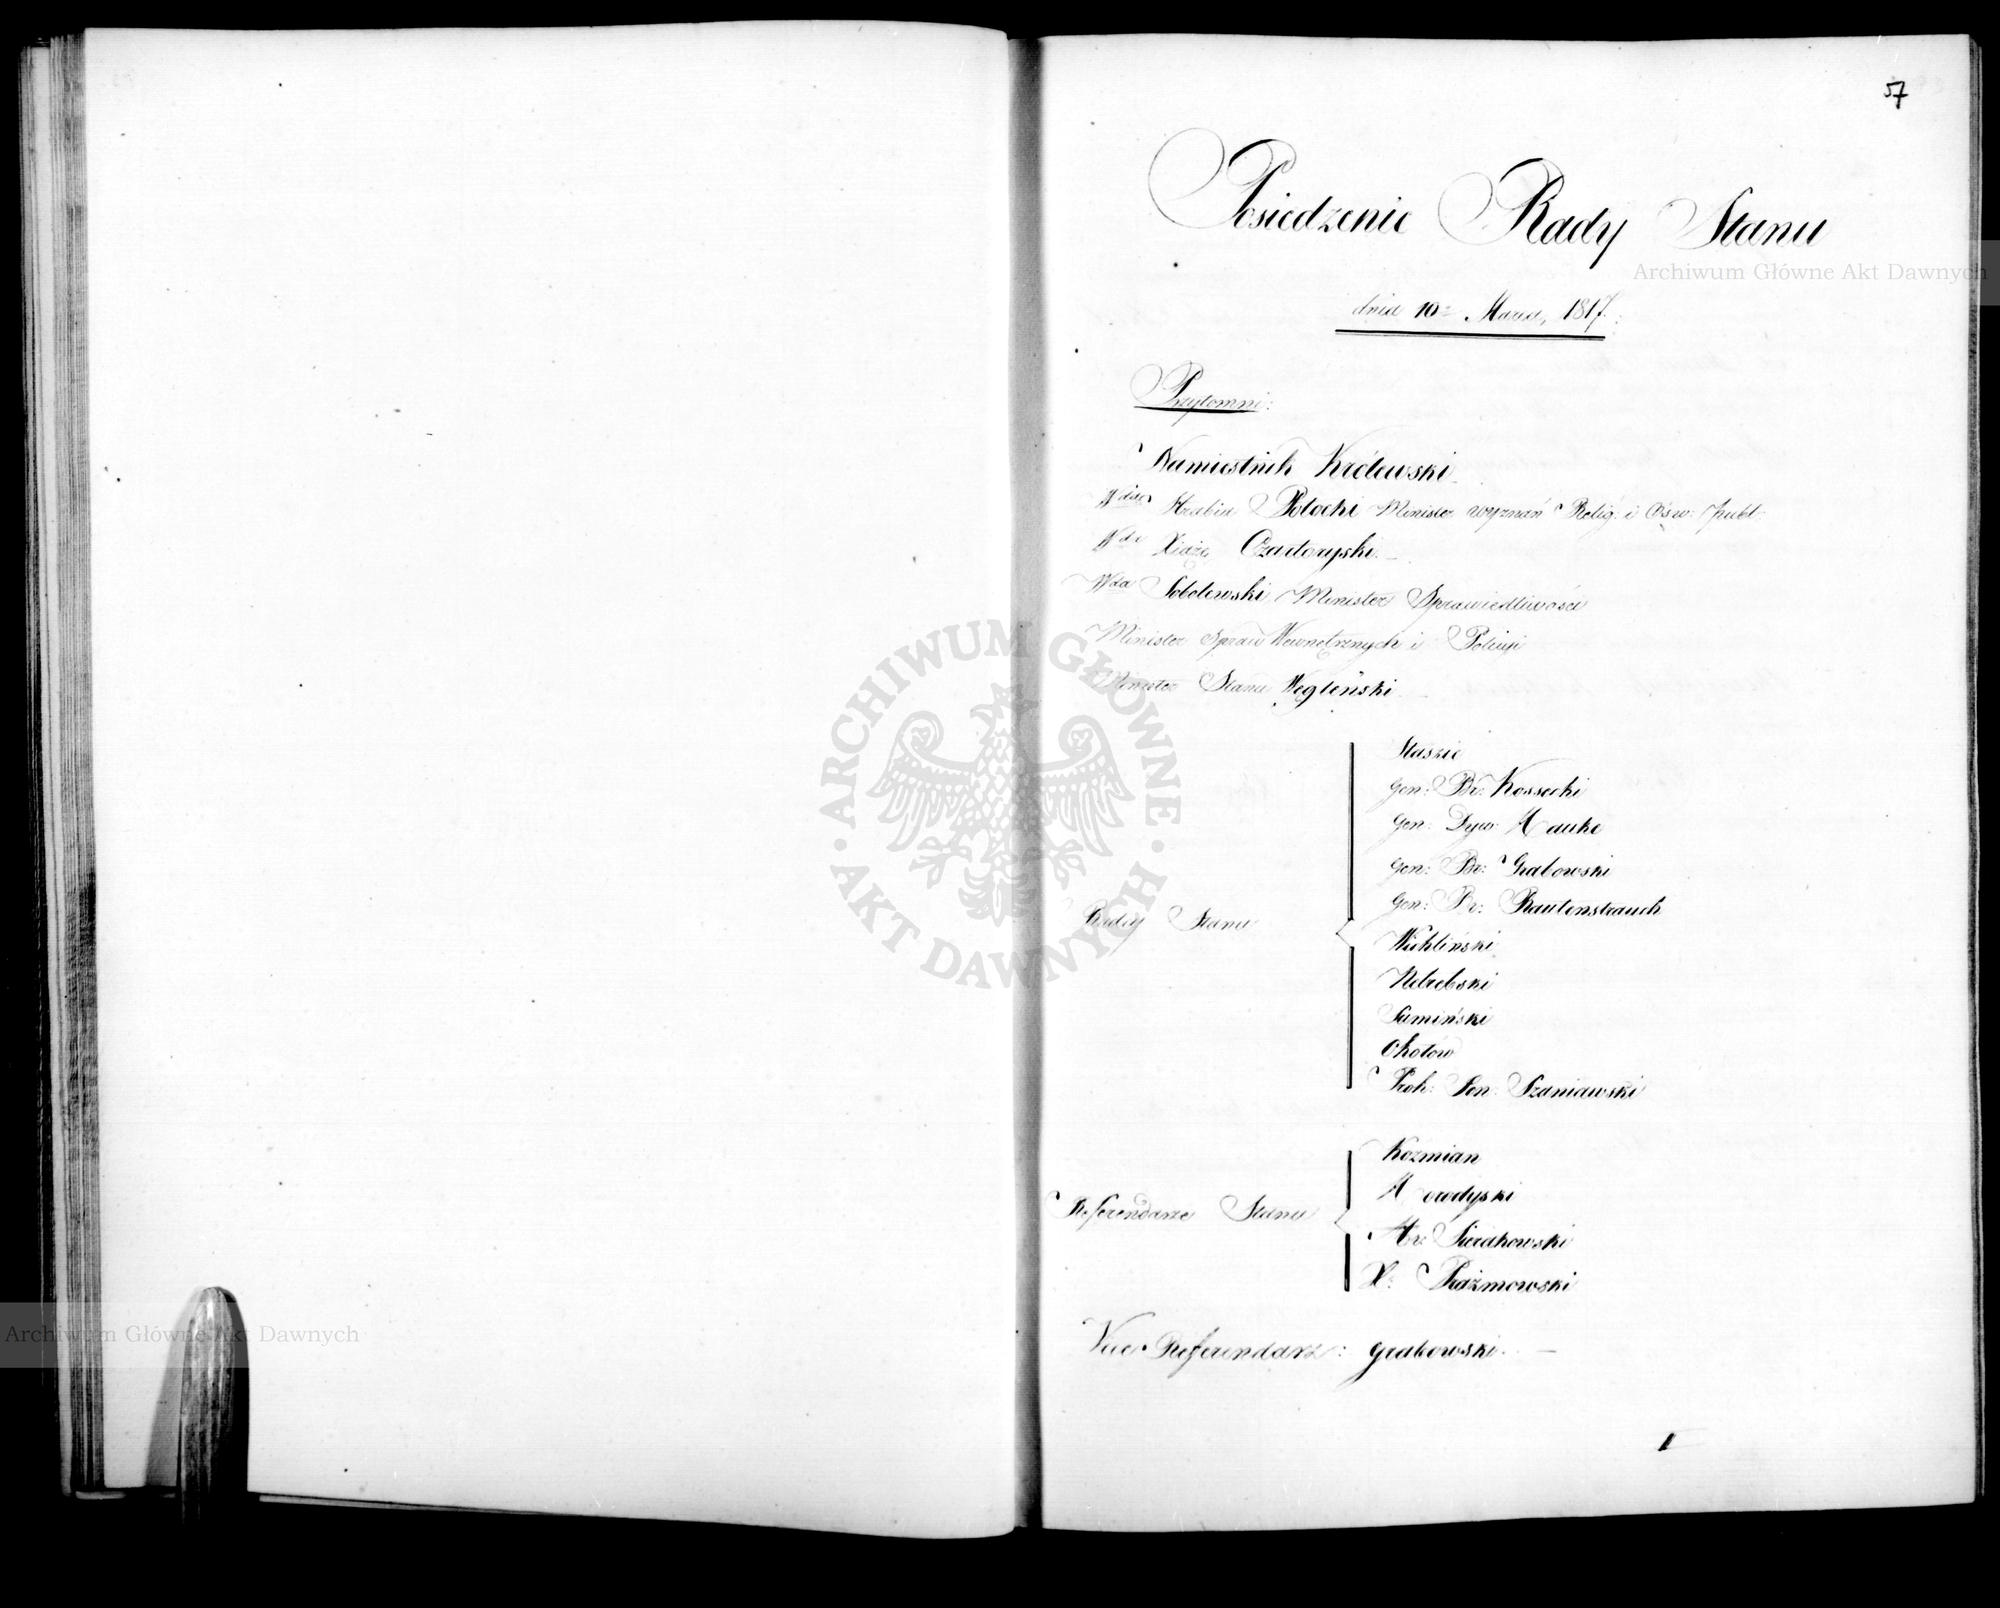 57
Posiedzenie Rady Stanu
Archiwum Główne Akt Dawnych
dnia 10º Marca, 1817.
Przytomni:
Namiestnik Królewski
Wdа Hrabia Potocki Minister wyznań Relig. i Ośw: publ.
Wda Xiąże Czartoryski.
Wda Sobolewski, Minister Sprawiedliwości
Minister Spraw Wewnętrznych i Policyi
Minister Stanu Węgleński
Radcy Stanu
Staszic
Gen: Br: Kossecki
Gen: Dyw: Hauke
Gen: Br: Grabowski
Gen: Br: Rautenstrauch
Wichliński
Nakwaski
Lamiński
Okołow
Prok: Jen: Szaniawski
Referendarze Stanu
Kozmian
Horodyski
Hr: Sierakowski
X: Prażmowski
Vice Referendarz: Grabowski.
ARCHIWUM GŁÓWNE AKT DAWNYCH
Archiwum Główne Akt Dawnych